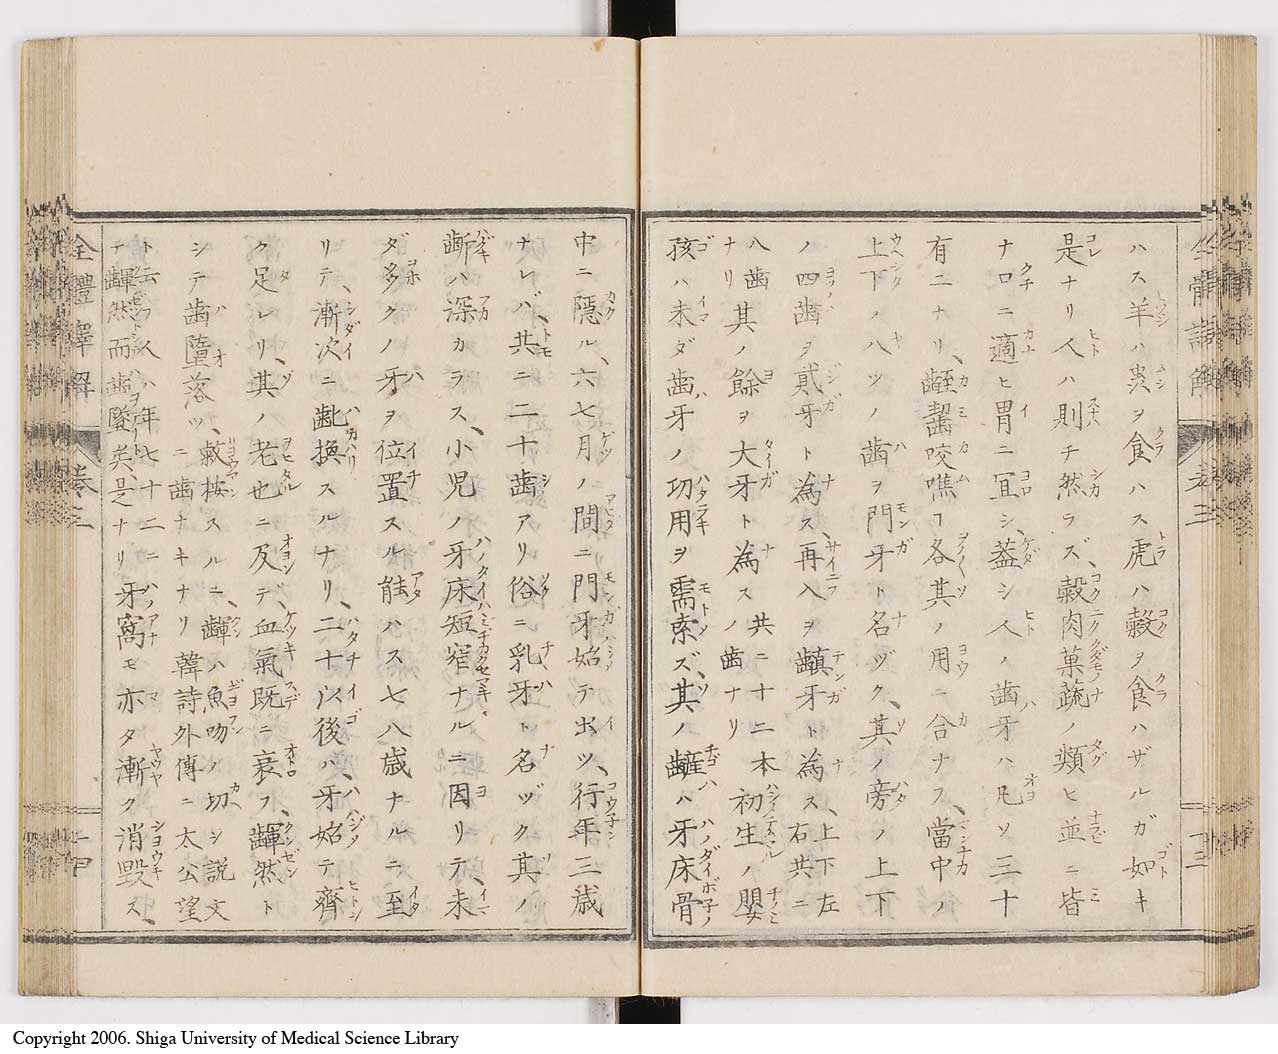 ハス羊ハ糞ヲ食ハス虎ハ穀ヲ食ハザルガ如キ
是ナリ人ハ則チ然ラズ、穀肉菓蔬ノ類ヒ並ニ皆
ナ口ニ適ヒ胃ニ冝シ蓋シ人ノ歯牙ハ凡ソ三十
有二ナリ、齧咬噍ヿ各其ノ用ニ合ナフ、當中ノ
上下ノ八ツノ歯ヲ門牙ト名ヅク、其ノ旁ノ上下
ノ四歯ヲ貳牙ト為ス、再入ヲ齻牙ト為ス、上下左右共ニ
八歯其ノ餘ヲ大牙ト為ス共ニ十二本
ナリノ歯ナリ初生ノ嬰
孩ハ未ダ歯牙ノ功用ヲ需索ズ、其ノハ牙床骨
中ニ隱ル、六七月ノ間ニ門牙始テ出ツ、行年三歳
ナレバ、共ニ二十歯アリ俗ニ乳牙ト名ヅク其ノ
齗ハ深カラス、小児ノ牙床短窄ナルニ因リテ、未
ダ多クノ牙ヲ位置スル能ハス七八歳ナルニ至
リテ、漸次ニ齔換スルナリ、二十以後ハ、牙始テ齊
ク足レリ、其ノ老也ニ及デ、血氣既ニ衰フ、齳然ト
シテ歯墮落ツ、敹桉スルニ、齳ハ魚吻ノ切シ説文
ニ歯ナキナリ韓詩外傳ニ太公望
ト云フ人ハ年七十二ニ
テ齳然而歯墜矣、是ナリ牙窩モ亦タ漸ク消毀ス、
全體譯解
卷三
十四
卷三
十三
Copyright 2006. Shiga University of Medical Science Library